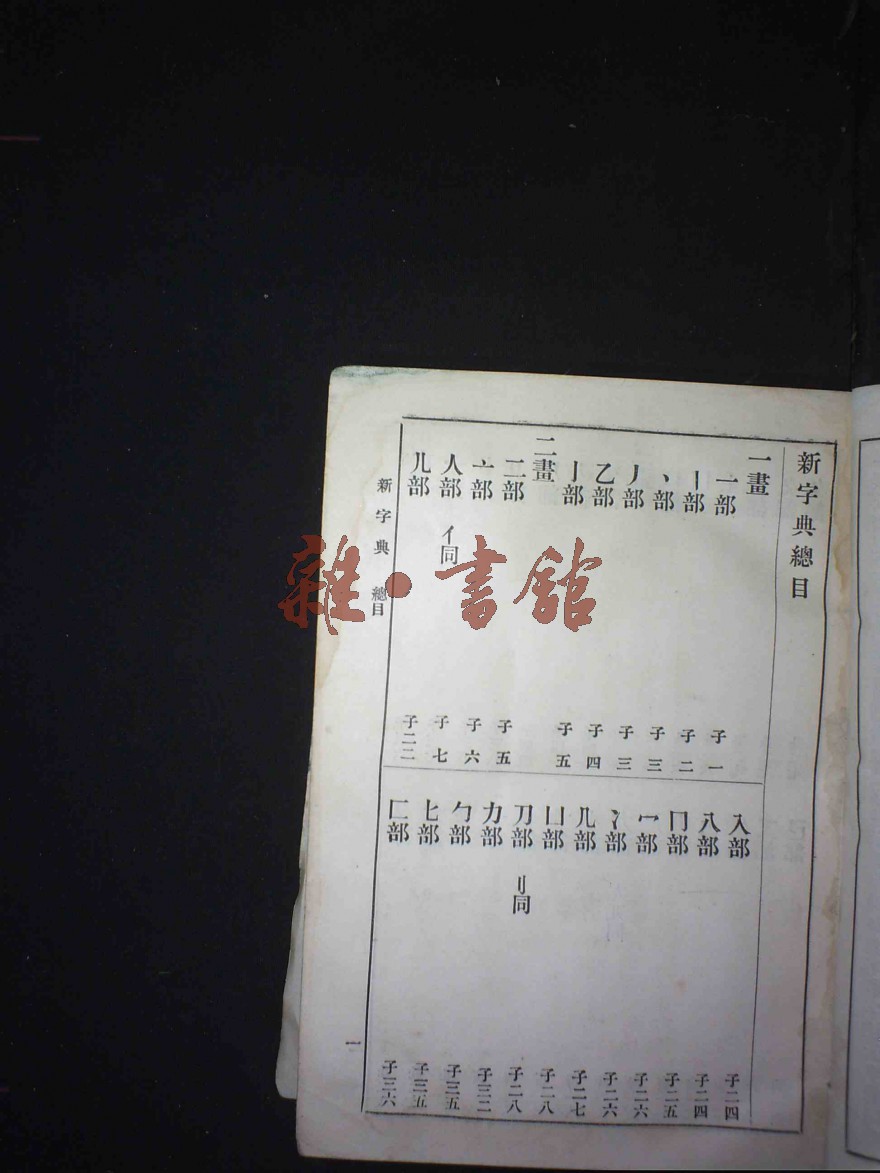 新字典總目
一畫
一部 子一
丨部 子二
丶部 子三
丿部 子三
乙部 子四
亅部 子五
二畫
二部 子五
亠部 子六
人部 亻同 子七
儿部 子二二
入部 子二四
八部 子二四
冂部 子二五
冖部 子二六
冫部 子二六
几部 子二七
凵部 子二八
刀部 刂同 子二八
力部 子三二
勹部 子三五
匕部 子三五
匚部 子三六
新字典 總目
一
雜·書館